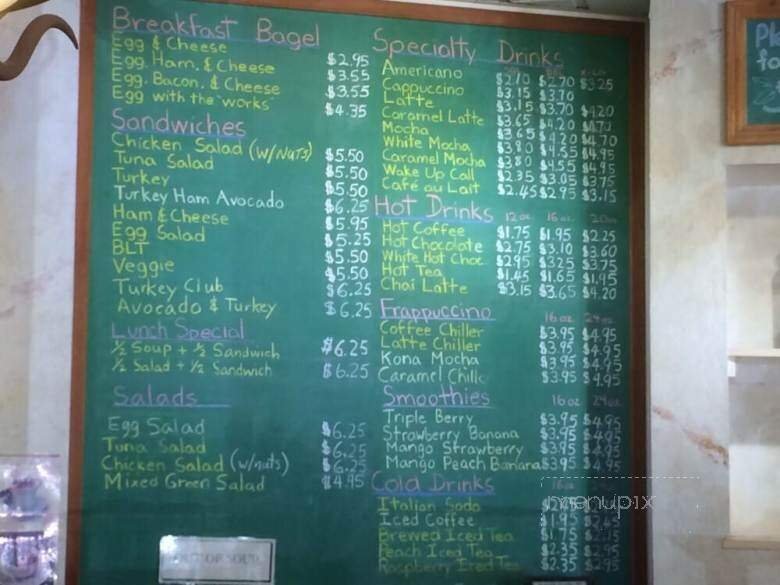 Breakfast Bagel
Egg & Cheese $2.95
Egg. Ham. & Cheese $3.55
Egg. Bacon. & Cheese $3.55
Egg with the "works" $4.35
Sandwiches
Chicken Salad (w/NUTS) $5.50
Tuna Salad $5.50
Turkey $5.50
Turkey Ham Avocado $6.25
Ham & Cheese $5.95
Egg Salad $5.25
BLT $5.50
Veggie $5.50
Turkey Club $6.25
Avocado & Turkey $6.25
Lunch Special
1/2 Soup + 1/2 Sandwich $6.25
1/2 Salad + 1/2 Sandwich $6.25
Salads
Egg Salad $6.25
Tuna Salad $6.25
Chicken Salad (w/nuts) $6.25
Mixed Green Salad $4.95
Specialty Drinks
Americano $2.10 $2.70 $3.25
Cappuccino $3.15 $3.70
Latte $3.15 $3.70 $4.20
Caramel Latte $3.65 $4.20 $4.70
Mocha $3.65 $4.20 $4.70
White Mocha $3.80 $4.55 $4.95
Caramel Mocha $3.80 $4.55 $4.95
Wake Up Call $2.35 $3.05 $3.75
Café au Lait $2.45 $2.95 $3.15
Hot Drinks 12 oz. 16 oz. 20oz
Hot Coffee $1.75 $1.95 $2.25
Hot Chocolate $2.75 $3.10 $3.60
White Hot Choc $2.95 $3.25 $3.75
Hot Tea $1.45 $1.65 $1.95
Chai Latte $3.15 $3.65 $4.20
Frappuccino 16 oz 24 oz
Coffee Chiller $3.95 $4.95
Latte Chiller $3.95 $4.95
Kona Mocha $3.95 $4.95
Caramel Chille $3.95 $4.95
Smoothies 16 oz 24oz
Triple Berry $3.95 $4.95
Strawberry Banana $3.95 $4.95
Mango Strawberry $3.95 $4.95
Mango Peach Banana $3.95 $4.95
Cold Drinks 16oz
Italian Soda
Iced Coffee $1.95 $2.45
Brewed Iced Tea $1.75
Peach Iced Tea $2.35 $2.95
Raspberry Iced Tea $2.35 $2.95
menupix